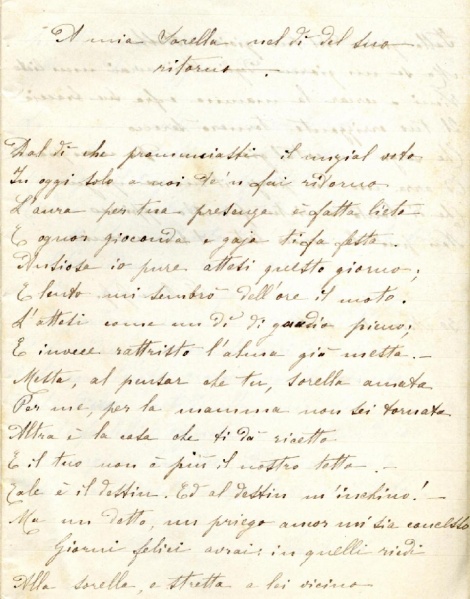 A mia Sorella nel dì del suo
ritorno.
Dal dì che pronunciasti il nuzial voto
In oggi solo a noi te'n fai ritorno
L'aura per tua presenza è fatta lieta
E ognor gioconda e gaja ti fa festa.
Ansiosa io pure attesi questo giorno;
E lento mi sembrò dell'ore il moto.
L'attesi come un dì di gaudio pieno;
E invece rattristo l'alma già mesta. —
Mesta, al pensar che tu, sorella amata
Per me, per la mamma non sei tornata
Altra è la casa che ti dà ricetto
E il tuo non è più il nostro tetto. —
Tale è il destin. Ed al destin m'inchino! —
Ma un detto, un priego amor mi sia concesso
Giorni felici avrai in quelli riedi
Alla sorella, e stretta a lei vicino